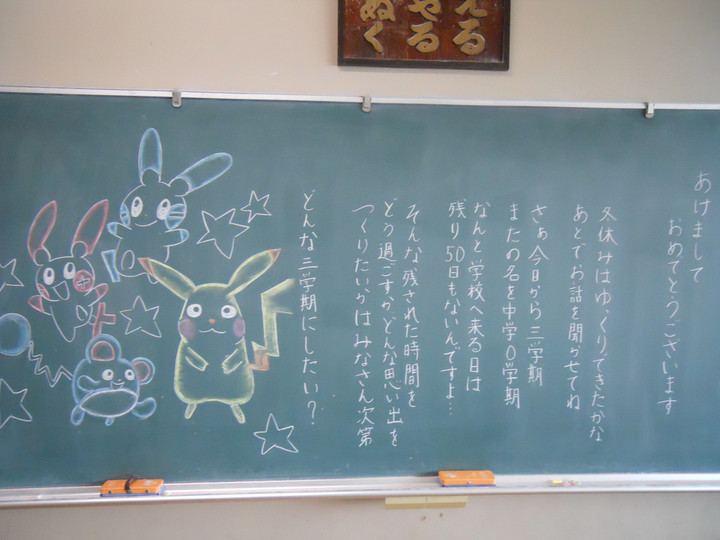 える
やる
ぬく
あけまして
おめでとうございます
冬休みはゆっくりできたかな
あとでお話を聞かせてね
さぁ今日から三学期
またの名を中学0学期
なんと学校へ来る日は
残り50日もないんですよ…
そんな残された時間を
どう過ごすか、どんな思い出を
つくりたいかはみなさん次第
どんな三学期にしたい？